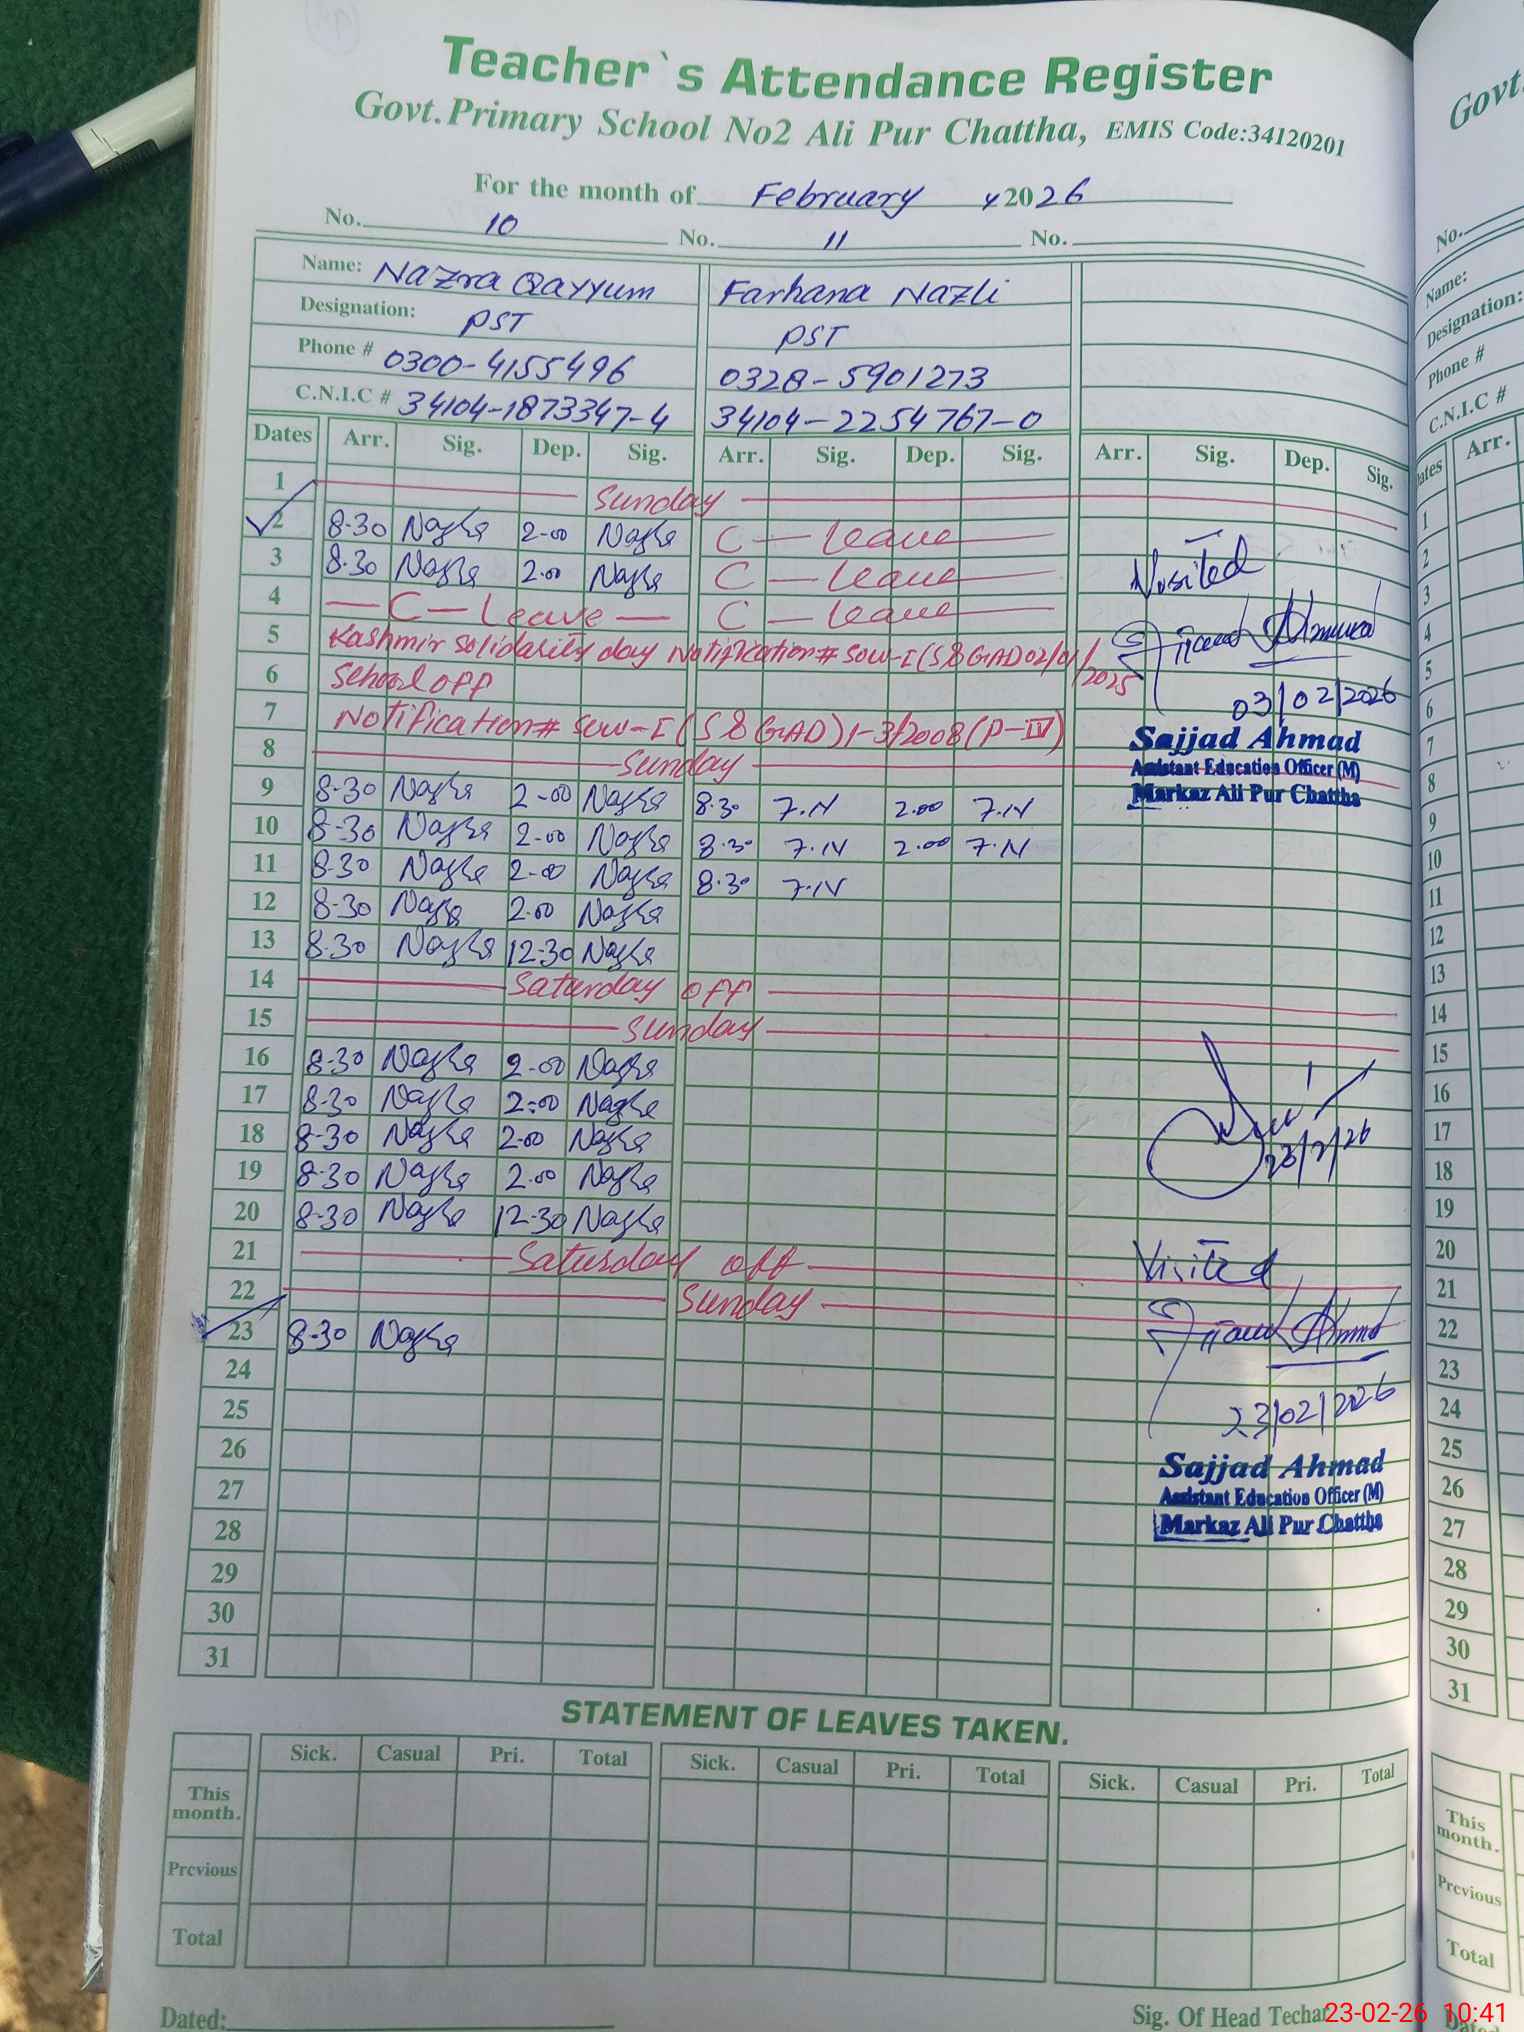 Teacher`s Attendance Register
Govt.Primary School No2 Ali Pur Chattha, EMIS Code:34120201
For the month of February 2026
No. 10 No. 11 No.
Name: Nazra Qayyum Farhana Nazli
Designation: PST PST
Phone # 0300-4155496 0328-5901273
C.N.I.C # 34104-1873347-4 34104-2254767-0
Dates Arr. Sig. Dep. Sig. Arr. Sig. Dep. Sig. Arr. Sig. Dep. Sig.
1 Sunday
2 8-30 2-00 C - Leave
3 8.30 2.00 C - Leave
4 C - Leave C - Leave
5 Kashmir Solidarity day Notification# SOW-I(S&GAD02/01/2025
6 School off
7 Notification# SOW-I(S&GAD)1-3/2008(P-IV)
8 Sunday
9 8-30 2-00 8.30 7.N 2.00 7.N
10 8-30 2-00 8.30 7.N 2.00 7.N
11 8-30 2-00 8.30 7.N
12 8-30 2.00
13 8.30 12-30
14 Saturday off
15 Sunday
16 8-30 2-00
17 8-30 2:00
18 8-30 2-00
19 8-30 2.00
20 8-30 12-30
21 Saturday off
22 Sunday
23 8-30
24
25
26
27
28
29
30
31
Visited
03/02/2026
Sajjad Ahmad
Assistant Education Officer (M)
Markaz Ali Pur Chattha
23/2/26
Visited
23/02/2026
Sajjad Ahmad
Assistant Education Officer (M)
Markaz Ali Pur Chattha
STATEMENT OF LEAVES TAKEN.
Sick. Casual Pri. Total Sick. Casual Pri. Total Sick. Casual Pri. Total
This month.
Previous
Total
Dated: Sig. Of Head Techar
23-02-26 10:41
Govt.
No.
Name:
Designation:
Phone #
C.N.I.C #
Arr.
1
2
3
4
5
6
7
8
9
10
11
12
13
14
15
16
17
18
19
20
21
22
23
24
25
26
27
28
29
30
31
This month.
Previous
Total